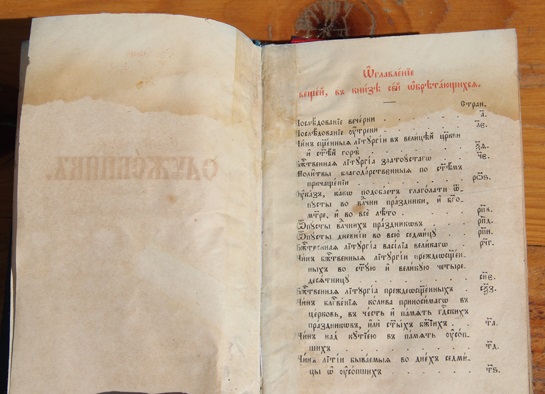 Ѡглавле́нїе
веще́й, въ кни́зѣ се́й ѡ҆брѣта́ющихсѧ.
Стран.
Послѣ́дованїе вече́рни . . . . . . . а҃.
Послѣ́дованїе ᲂу҆́трени . . . . . . . л҃е.
Чи́нъ сщ҃е́нныѧ лїтꙋргі́и въ вели́цѣй цр҃кви
и҆ ст҃ѣ́й горѣ̀ . . . . . . .
Бж҃е́ственнаѧ лїтꙋргі́а златоꙋ́стагѡ
Моли́твы благода́рственныѧ по ст҃ѣ́мъ
причаще́нїи . . . . . . .
Оу҆ка́зъ, ка́кѡ подоба́етъ глаго́лати ѿ-
пꙋсты̀ во вл҃чни пра́здники, и҆ бг҃о-
мт҃ре, и҆ во всѐ лѣ́то . . . . . р҃пв.
Ѿпꙋсты̀ вл҃чнихъ пра́здникѡвъ . . . . р҃пд.
Ѿпꙋсты̀ дневні́и во всю̀ седми́цꙋ . . . . р҃пи.
Бж҃е́ственнаѧ лїтꙋргі́а васі́лїа вели́кагѡ р҃чг.
Чи́нъ бж҃е́ственныѧ лїтꙋргі́и преждеѡсщ҃е́н-
ныхъ во ст҃ꙋ́ю и҆ вели́кꙋю четыре-
десѧ́тницꙋ . . . . . . . с҃не.
Бж҃е́ственнаѧ лїтꙋргі́а преждеѡсщ҃е́нныхъ . с҃ѯз.
Чи́нъ благⷭ҇ве́нїѧ ко́лива приноси́магѡ въ
це́рковь, въ че́сть и҆ па́мѧть гдⷭ҇скихъ
пра́здникѡвъ, и҆лѝ ст҃ы́хъ бж҃їихъ . т҃а.
Чи́нъ над кꙋтїе́ю въ па́мѧть ᲂу҆со́п-
шихъ . . . . . . . т҃д.
Чи́нъ лїті́и быва́емыѧ во дне́хъ седми́-
цы ѡ҆ ᲂу҆со́пшихъ . . . . . . т҃ѕ.